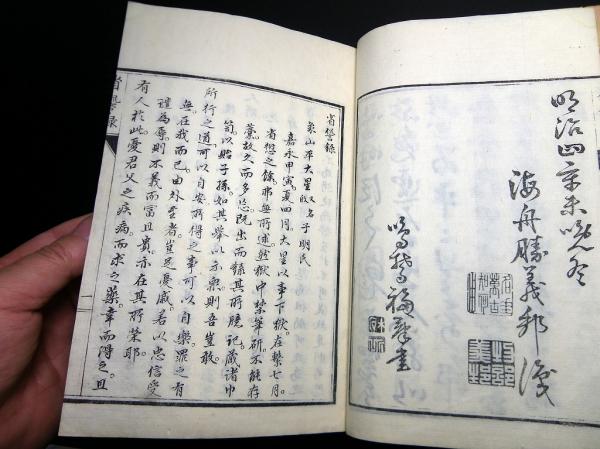 明治四辛未晩冬
海舟勝義邦識
省諐録
象山平大星啟又名子明氏
嘉永甲寅夏四月大星以事下獄。在繫七月。
省愆之餘。非無所述。然獄中禁筆研。不能存
藁。故久而多忘。既出而錄其所臆記。藏諸巾
笥。以貽子孫。如其擧以示衆。則吾豈敢
所行之道。可以自安。所得之事。可以自樂。罪之有
無。在我而已。由外至者。豈足憂戚。若以忠信受
譴爲辱。則不義而富且貴。亦在其所榮耶。
有人於此。憂君父之疾病。而求之藥。幸而得之。且
省諐録